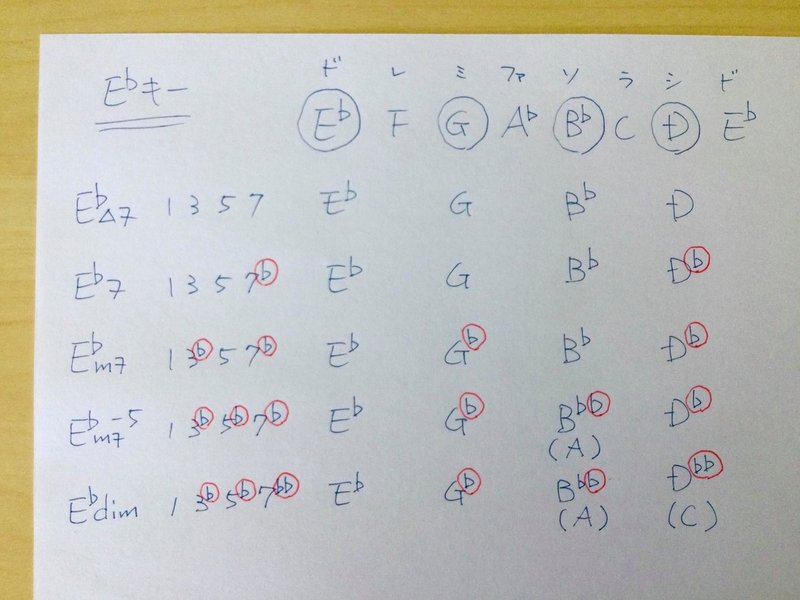 ド レ ミ ファ ソ ラ シ ド
E♭キー E♭ F G A♭ B♭ C D E♭
E♭△7 1 3 5 7 E♭ G B♭ D
E♭7 1 3 5 7♭ E♭ G B♭ D♭
E♭m7 1 3♭ 5 7♭ E♭ G♭ B♭ D♭
E♭m7-5 1 3♭ 5♭ 7♭ E♭ G♭ B♭♭ D♭
(A)
E♭dim 1 3♭ 5♭ 7♭♭ E♭ G♭ B♭♭ D♭♭
(A) (C)